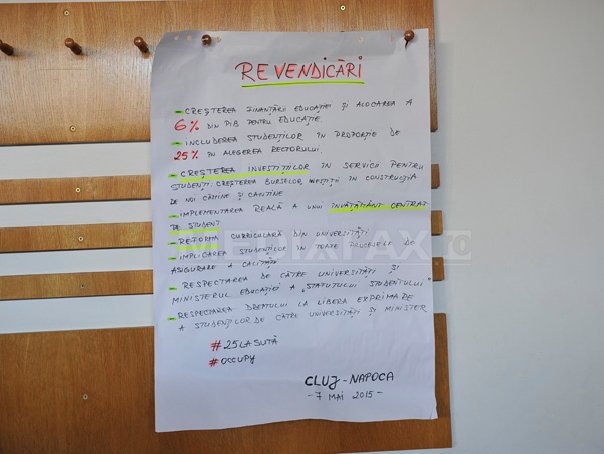 REVENDICĂRI
- CREȘTEREA FINANȚĂRII EDUCAȚIEI ȘI ALOCAREA A
6% DIN PIB PENTRU EDUCAȚIE.
- INCLUDEREA STUDENȚILOR ÎN PROPORȚIE DE
25% ÎN ALEGEREA RECTORULUI
- CREȘTEREA INVESTIȚIILOR ÎN SERVICII PENTRU
STUDENȚI: CREȘTEREA BURSELOR, INVESTIȚII ÎN CONSTRUCȚIA
DE NOI CĂMINE ȘI CANTINE
- IMPLEMENTAREA REALĂ A UNUI ÎNVĂȚĂMÂNT CENTRAT
PE STUDENT
- REFORMA CURRICULARĂ DIN UNIVERSITĂȚI
- IMPLICAREA STUDENȚILOR ÎN TOATE PROCESELE DE
ASIGURARE A CALITĂȚII
- RESPECTAREA DE CĂTRE UNIVERSITĂȚI ȘI
MINISTERUL EDUCAȚIEI A „STATUTULUI STUDENTULUI"
- RESPECTAREA DREPTULUI LA LIBERA EXPRIMARE
A STUDENȚILOR DE CĂTRE UNIVERSITĂȚI ȘI MINISTER
#25LASUTĂ
#OCCUPY
CLUJ-NAPOCA
- 7 MAI 2015 -
MEDIAFAX